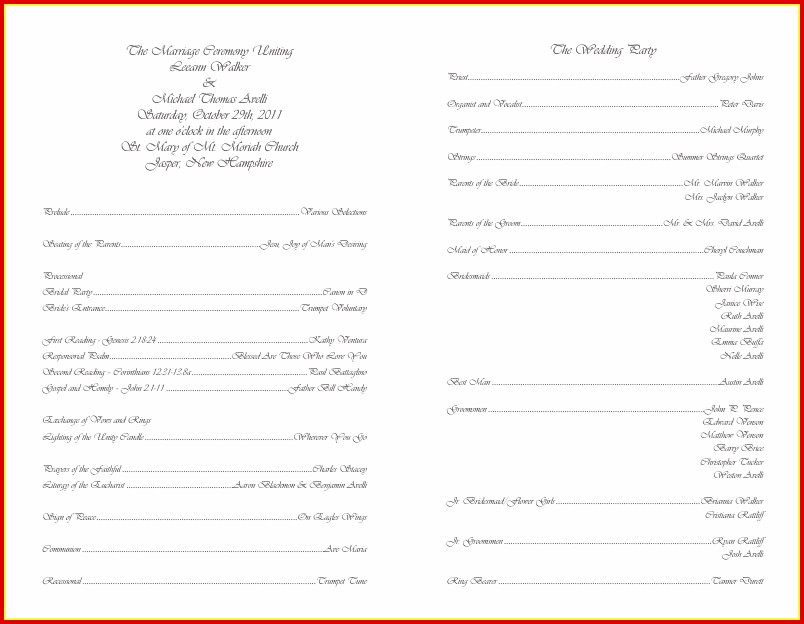 The Marriage Ceremony Uniting
Leeann Walker
&
Michael Thomas Avelli
Saturday, October 29th, 2011
at one o'clock in the afternoon
St. Mary of Mt. Moriah Church
Jasper, New Hampshire
Prelude Various Selections
Seating of the Parents Jesu, Joy of Man's Desiring
Processional
Bridal Party Canon in D
Brides Entrance Trumpet Voluntary
First Reading - Genesis 2:18-24 Kathy Ventura
Responsorial Psalm Blessed Are Those Who Love You
Second Reading - Corinthians 12:31-13:8a Paul Battaglino
Gospel and Homily - John 2:1-11 Father Bill Handy
Exchange of Vows and Rings
Lighting of the Unity Candle Wherever You Go
Prayers of the Faithful Charles Stacey
Liturgy of the Eucharist Aaron Blackmon & Benjamin Avelli
Sign of Peace On Eagles Wings
Communion Ave Maria
Recessional Trumpet Tune
The Wedding Party
Priest Father Gregory Johns
Organist and Vocalist Peter Davis
Trumpeter Michael Murphy
Strings Summer Strings Quartet
Parents of the Bride Mr. Marvin Walker
Mrs. Jaclyn Walker
Parents of the Groom Mr. & Mrs. David Avelli
Maid of Honor Cheryl Couchman
Bridesmaids Paula Conner
Sherri Murray
Janice Woe
Ruth Avelli
Maurine Avelli
Emma Buffa
Nelle Avelli
Best Man Austin Avelli
Groomsmen John P. Pence
Edward Venson
Matthew Venson
Barry Brice
Christopher Tucker
Weston Avelli
Jr. Bridesmaid/Flower Girls Brianna Walker
Cristiana Ratliff
Jr. Groomsmen Ryan Ratliff
Josh Avelli
Ring Bearer Tanner Durett